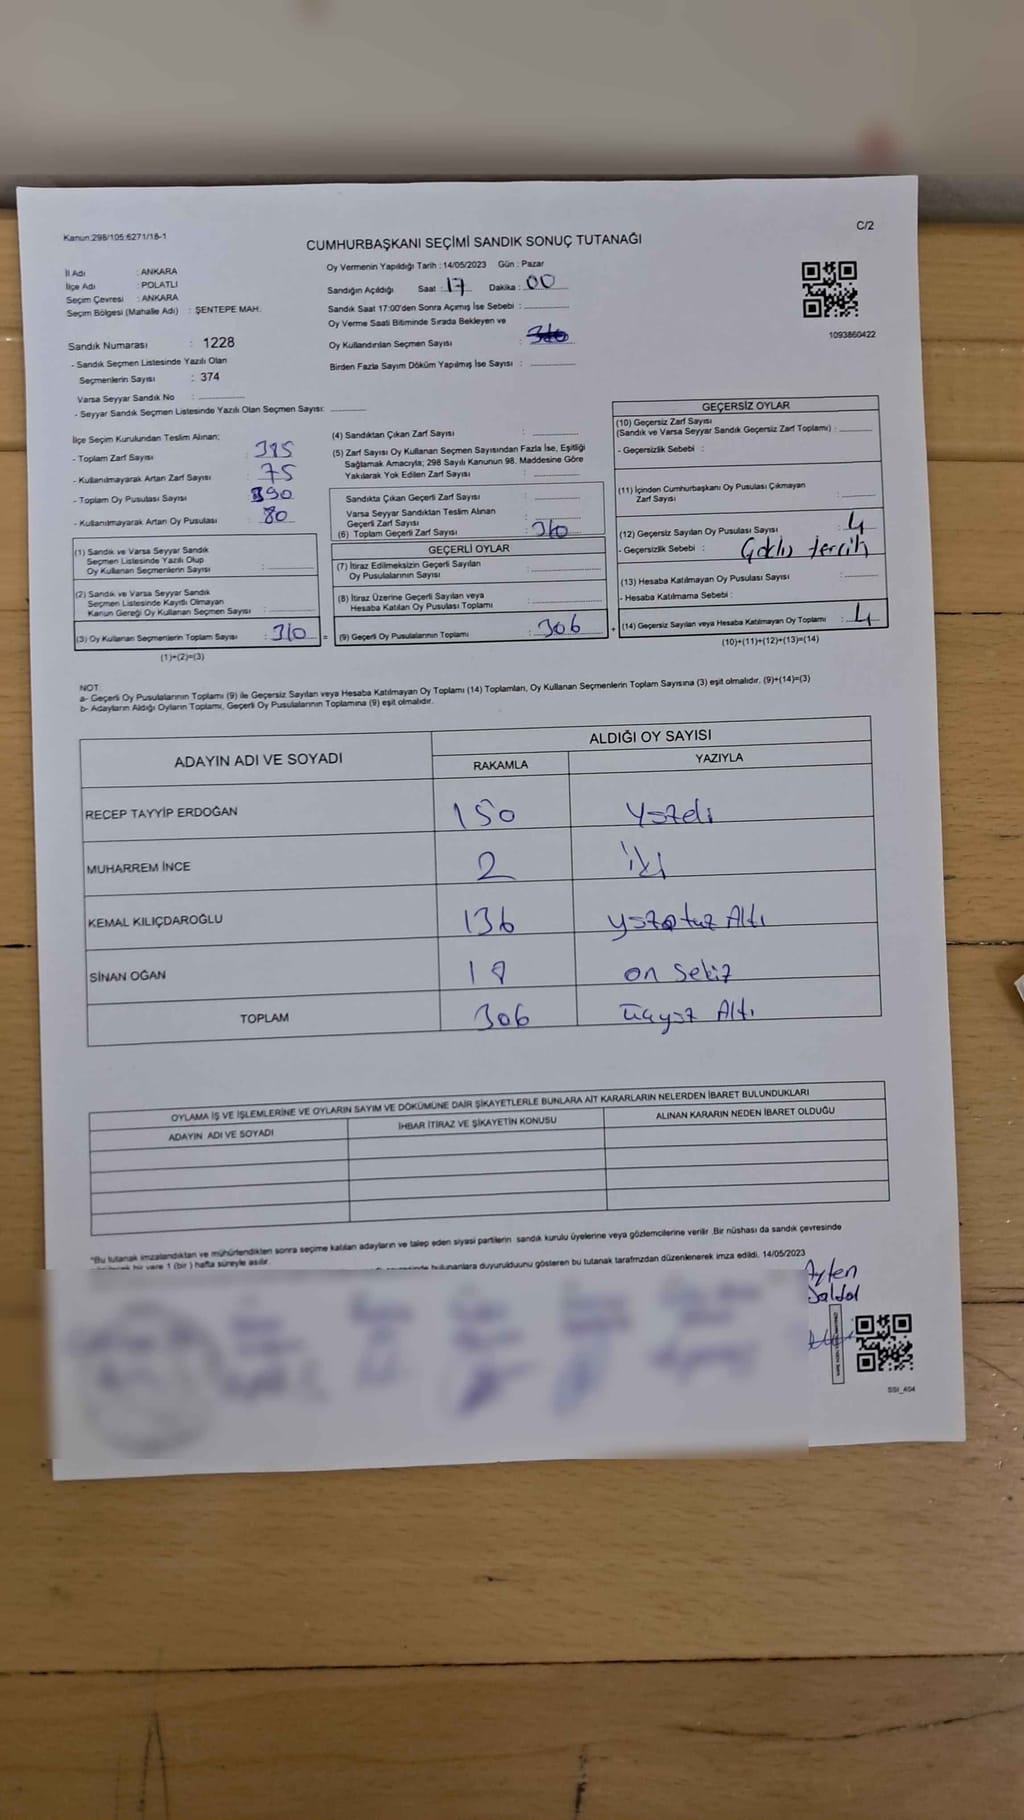 Kanun:298/105:6271/18-1
C/2
CUMHURBAŞKANI SEÇİMİ SANDIK SONUÇ TUTANAĞI
İl Adı : ANKARA
İlçe Adı : POLATLI
Seçim Çevresi : ANKARA
Seçim Bölgesi (Mahalle Adı) : ŞENTEPE MAH.
Oy Vermenin Yapıldığı Tarih : 14/05/2023 Gün : Pazar
Sandığın Açıldığı Saat : 17 Dakika : 00
Sandık Saat 17:00'den Sonra Açımış İse Sebebi :
Oy Verme Saati Bitiminde Sırada Bekleyen ve
Oy Kullandırılan Seçmen Sayısı :
Birden Fazla Sayım Döküm Yapılmış İse Sayısı :
1093860422
Sandık Numarası : 1228
- Sandık Seçmen Listesinde Yazılı Olan
Seçmenlerin Sayısı : 374
Varsa Seyyar Sandık No :
- Seyyar Sandık Seçmen Listesinde Yazılı Olan Seçmen Sayısı:
İlçe Seçim Kurulundan Teslim Alınan;
- Toplam Zarf Sayısı : 385
- Kullanılmayarak Artan Zarf Sayısı : 75
- Toplam Oy Pusulası Sayısı : 390
- Kullanılmayarak Artan Oy Pusulası : 80
(1) Sandık ve Varsa Seyyar Sandık
Seçmen Listesinde Yazılı Olup
Oy Kullanan Seçmenlerin Sayısı :
(2) Sandık ve Varsa Seyyar Sandık
Seçmen Listesinde Kayıtlı Olmayan
Kanun Gereği Oy Kullanan Seçmen Sayısı :
(3) Oy Kullanan Seçmenlerin Toplam Sayısı : 310 =
(1)+(2)=(3)
(4) Sandıktan Çıkan Zarf Sayısı :
(5) Zarf Sayısı Oy Kullanan Seçmen Sayısından Fazla İse, Eşitliği
Sağlamak Amacıyla; 298 Sayılı Kanunun 98. Maddesine Göre
Yakılarak Yok Edilen Zarf Sayısı :
Sandıkta Çıkan Geçerli Zarf Sayısı :
Varsa Seyyar Sandıktan Teslim Alınan
Geçerli Zarf Sayısı :
(6) Toplam Geçerli Zarf Sayısı : 310
GEÇERLİ OYLAR
(7) İtiraz Edilmeksizin Geçerli Sayılan
Oy Pusulalarının Sayısı :
(8) İtiraz Üzerine Geçerli Sayılan veya
Hesaba Katılan Oy Pusulası Toplamı :
(9) Geçerli Oy Pusulalarının Toplamı : 306 +
GEÇERSİZ OYLAR
(10) Geçersiz Zarf Sayısı
(Sandık ve Varsa Seyyar Sandık Geçersiz Zarf Toplamı) :
- Geçersizlik Sebebi :
(11) İçinden Cumhurbaşkanı Oy Pusulası Çıkmayan
Zarf Sayısı :
(12) Geçersiz Sayılan Oy Pusulası Sayısı : 4
- Geçersizlik Sebebi : Çoklu tercih
(13) Hesaba Katılmayan Oy Pusulası Sayısı :
- Hesaba Katılmama Sebebi :
(14) Geçersiz Sayılan veya Hesaba Katılmayan Oy Toplamı : 4
(10)+(11)+(12)+(13)=(14)
NOT:
a- Geçerli Oy Pusulalarının Toplamı (9) ile Geçersiz Sayılan veya Hesaba Katılmayan Oy Toplamı (14) Toplamları, Oy Kullanan Seçmenlerin Toplam Sayısına (3) eşit olmalıdır. (9)+(14)=(3)
b- Adayların Aldığı Oyların Toplamı, Geçerli Oy Pusulalarının Toplamına (9) eşit olmalıdır.
ADAYIN ADI VE SOYADI
ALDIĞI OY SAYISI
RAKAMLA
YAZIYLA
RECEP TAYYİP ERDOĞAN 150 Yüzelli
MUHARREM İNCE 2 iki
KEMAL KILIÇDAROĞLU 136 yüzotuz Altı
SİNAN OĞAN 18 on sekiz
TOPLAM 306 üçyüz Altı
OYLAMA İŞ VE İŞLEMLERİNE VE OYLARIN SAYIM VE DÖKÜMÜNE DAİR ŞİKAYETLERLE BUNLARA AİT KARARLARIN NELERDEN İBARET BULUNDUKLARI
ADAYIN ADI VE SOYADI
İHBAR İTİRAZ VE ŞİKAYETİN KONUSU
ALINAN KARARIN NEDEN İBARET OLDUĞU
"Bu tutanak imzalandıktan ve mühürlendikten sonra seçime katılan adayların ve talep eden siyasi partilerin sandık kurulu üyelerine veya gözlemcilerine verilir .Bir nüshası da sandık çevresinde
bir yere 1 (bir ) hafta süreyle asılır.
bulunanlara duyurulduunu gösteren bu tutanak tarafımzdan düzenlenerek imza edildi. 14/05/2023
Ayten
SSI_404